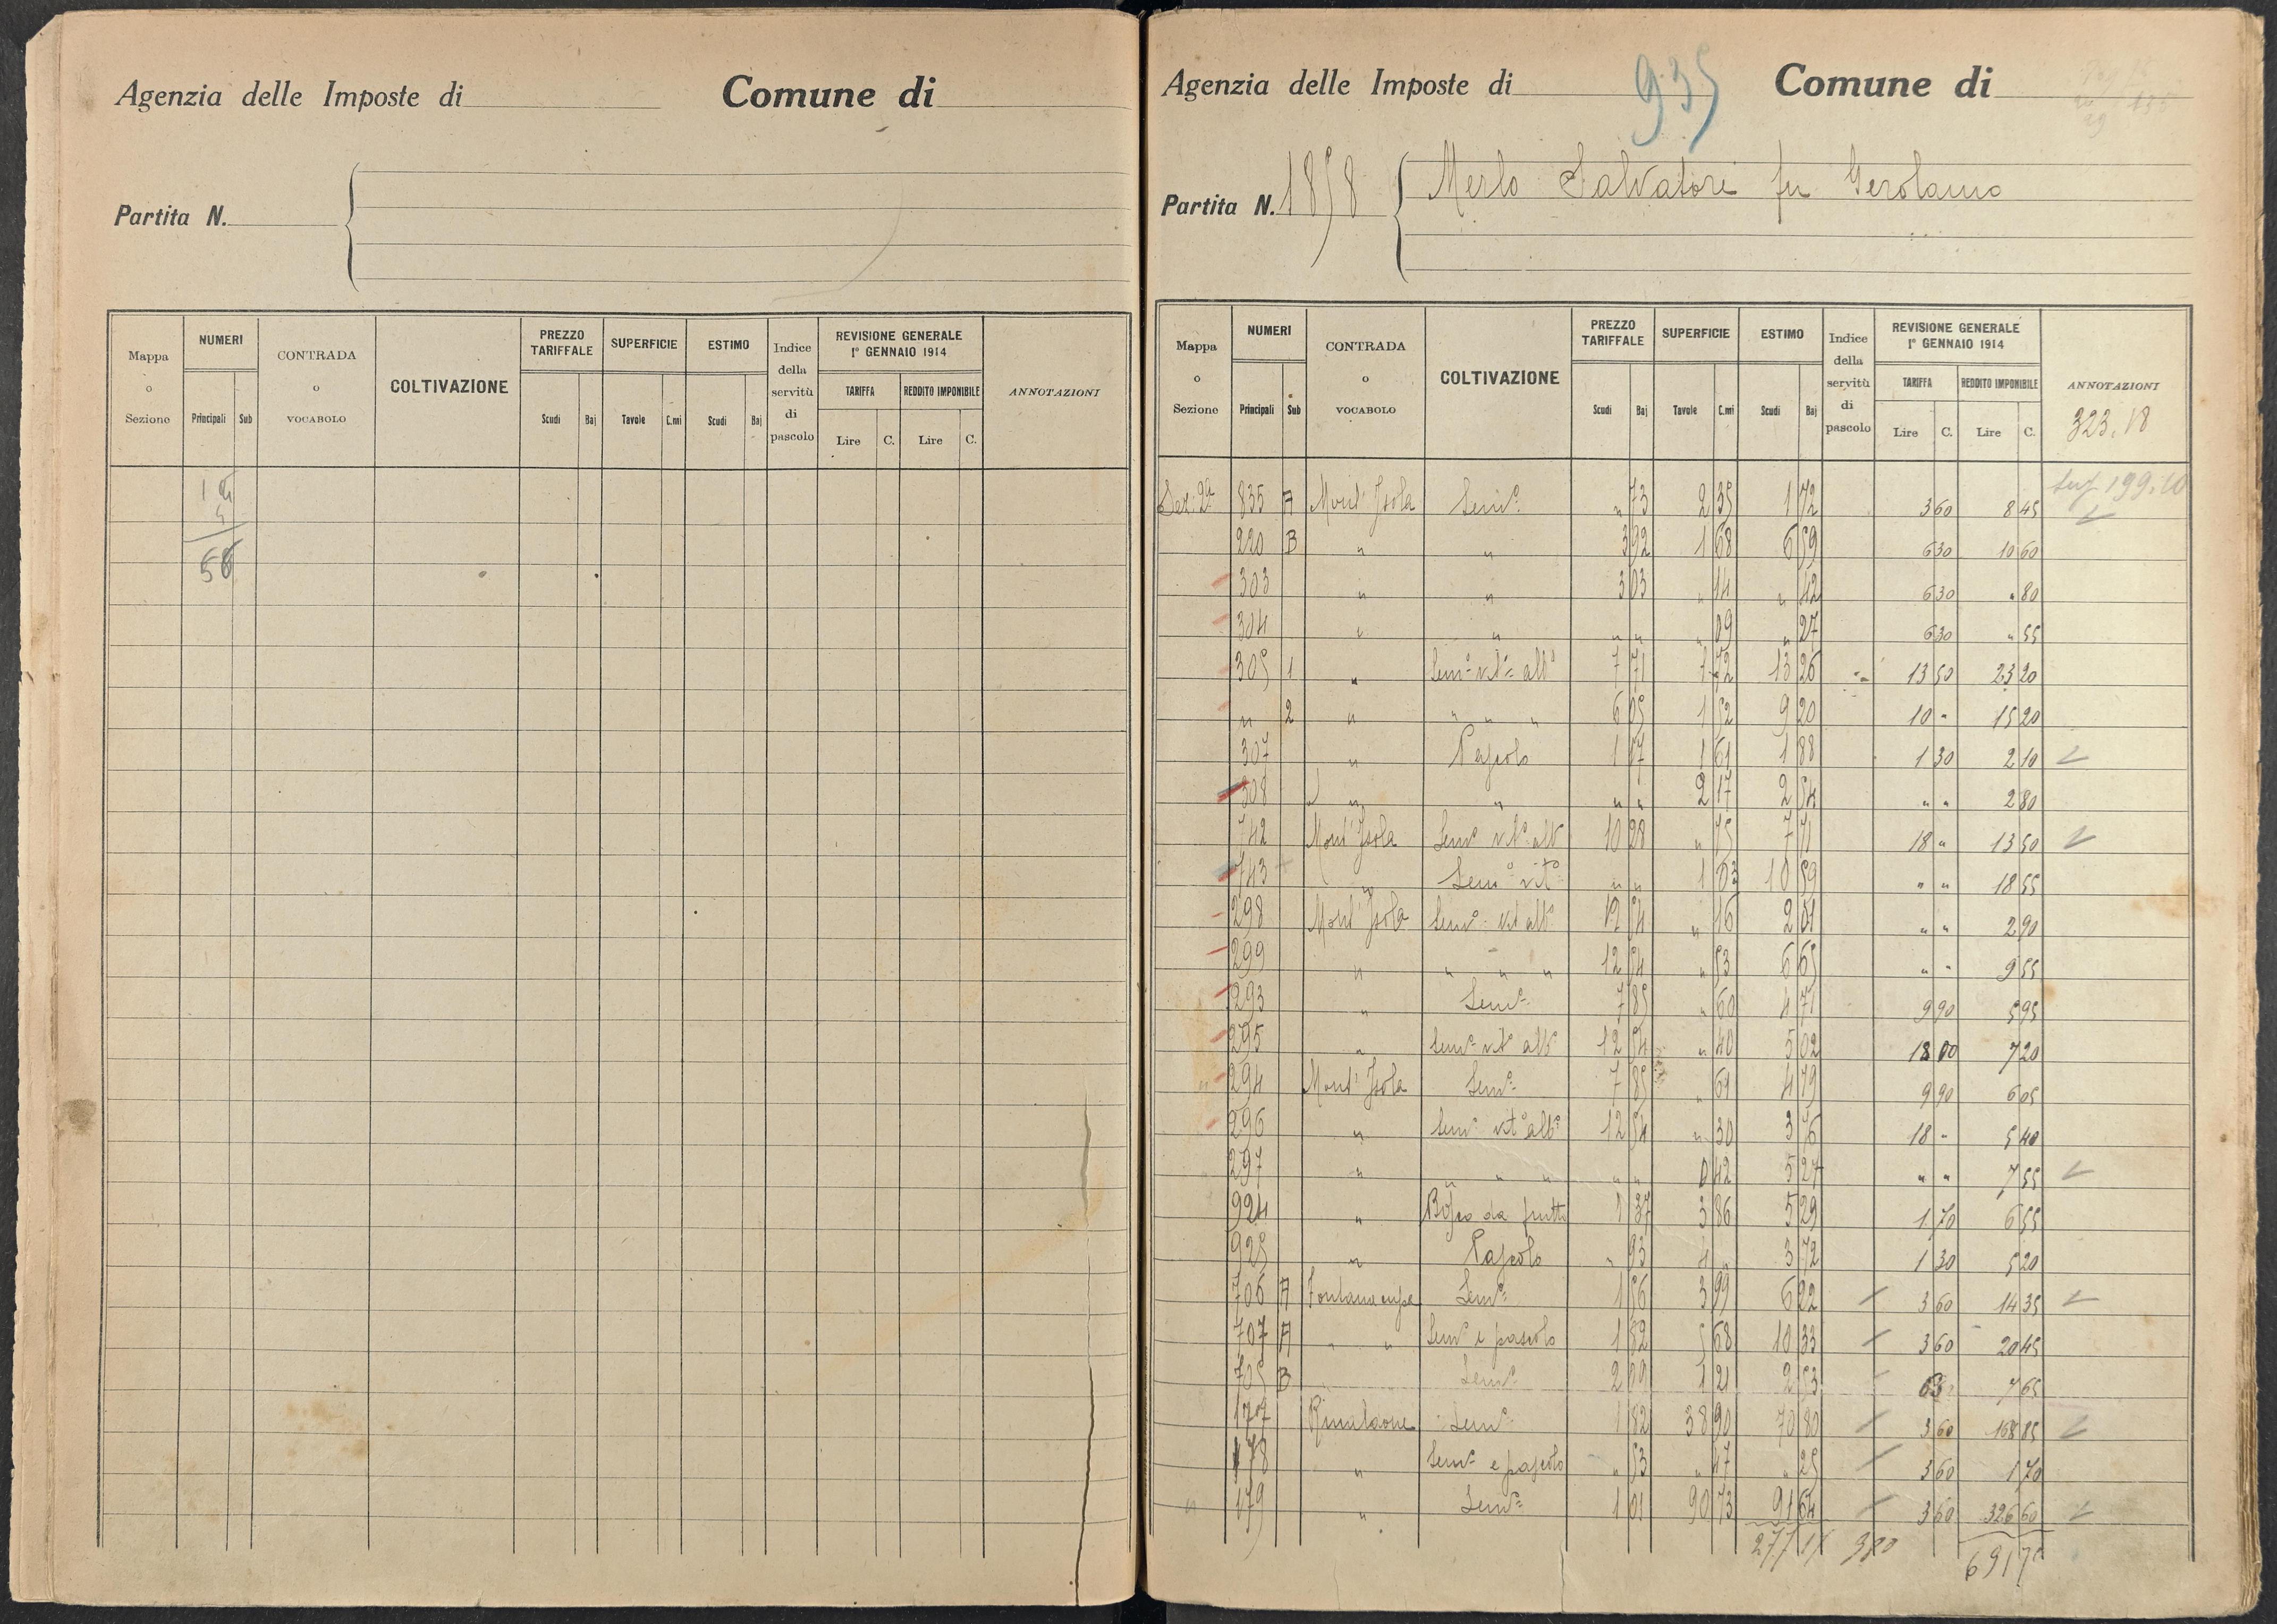 Agenzia delle Imposte di Comune di
Partita N.
Mappa o Sezione NUMERI Principali Sub CONTRADA o VOCABOLO COLTIVAZIONE PREZZO TARIFFALE Scudi Baj SUPERFICIE Tavole C.mi ESTIMO Scudi Baj Indice della servitù di pascolo REVISIONE GENERALE 1° GENNAIO 1914 TARIFFA Lire C. REDDITO IMPONIBILE Lire C. ANNOTAZIONI
58
Agenzia delle Imposte di 935 Comune di
Partita N. 1858 Merlo Salvatore fu Gerolamo
Mappa o Sezione NUMERI Principali Sub CONTRADA o VOCABOLO COLTIVAZIONE PREZZO TARIFFALE Scudi Baj SUPERFICIE Tavole C.mi ESTIMO Scudi Baj Indice della servitù di pascolo REVISIONE GENERALE 1° GENNAIO 1914 TARIFFA Lire C. REDDITO IMPONIBILE Lire C. ANNOTAZIONI
323.18
199.10
Sez: 2a 835 A Mont' Isola Semo „ 73 2 35 1 72 3 60 8 45
220 B „ „ 3 92 1 68 6 59 6 30 10 60
303 „ „ 3 03 „ 14 „ 42 6 30 „ 80
304 „ „ „ „ „ 09 „ 27 6 30 „ 55
305 1 „ Semo vito albo 7 71 1 72 13 26 13 50 23 20
„ 2 „ „ „ „ 6 05 1 52 9 20 10 - 15 20
307 „ Pascolo 1 17 1 61 1 88 1 30 2 10
308 „ „ „ „ 2 17 2 54 „ „ 2 80
742 Mont' Isola Semo vito alb 10 28 „ 75 7 71 18 „ 13 50
743 „ Semo vito „ „ 1 03 10 59 „ „ 18 55
298 Mont' Isola Semo vit albo 12 54 „ 16 2 01 „ „ 2 90
299 „ „ „ „ 12 54 „ 53 6 65 „ „ 9 55
293 „ Semo 7 85 „ 60 4 71 9 90 5 95
295 „ Semo vito albo 12 54 „ 40 5 02 18 00 7 20
„ 294 Mont' Isola Semo 7 85 „ 61 4 79 9 90 6 05
296 „ Semo vito albo 12 54 „ 30 3 76 18 - 5 40
297 „ „ „ „ „ „ 0 42 5 27 „ „ 7 55
924 „ Bosco da frutto 1 37 3 86 5 29 1 70 6 55
925 „ Pascolo „ 93 4 „ 3 72 1 30 5 20
706 A Semo 1 56 3 99 6 22 3 60 14 35
707 A „ „ Semo e pascolo 1 82 5 68 10 33 3 60 20 45
705 B Semo 2 09 1 21 2 53 7 65
177 Semo 1 82 38 90 70 80 3 60 168 85
178 „ Semo e pascolo „ 53 „ 47 „ 25 3 60 1 70
„ 179 „ Semo 1 01 90 73 91 64 3 60 326 60
277 691 7